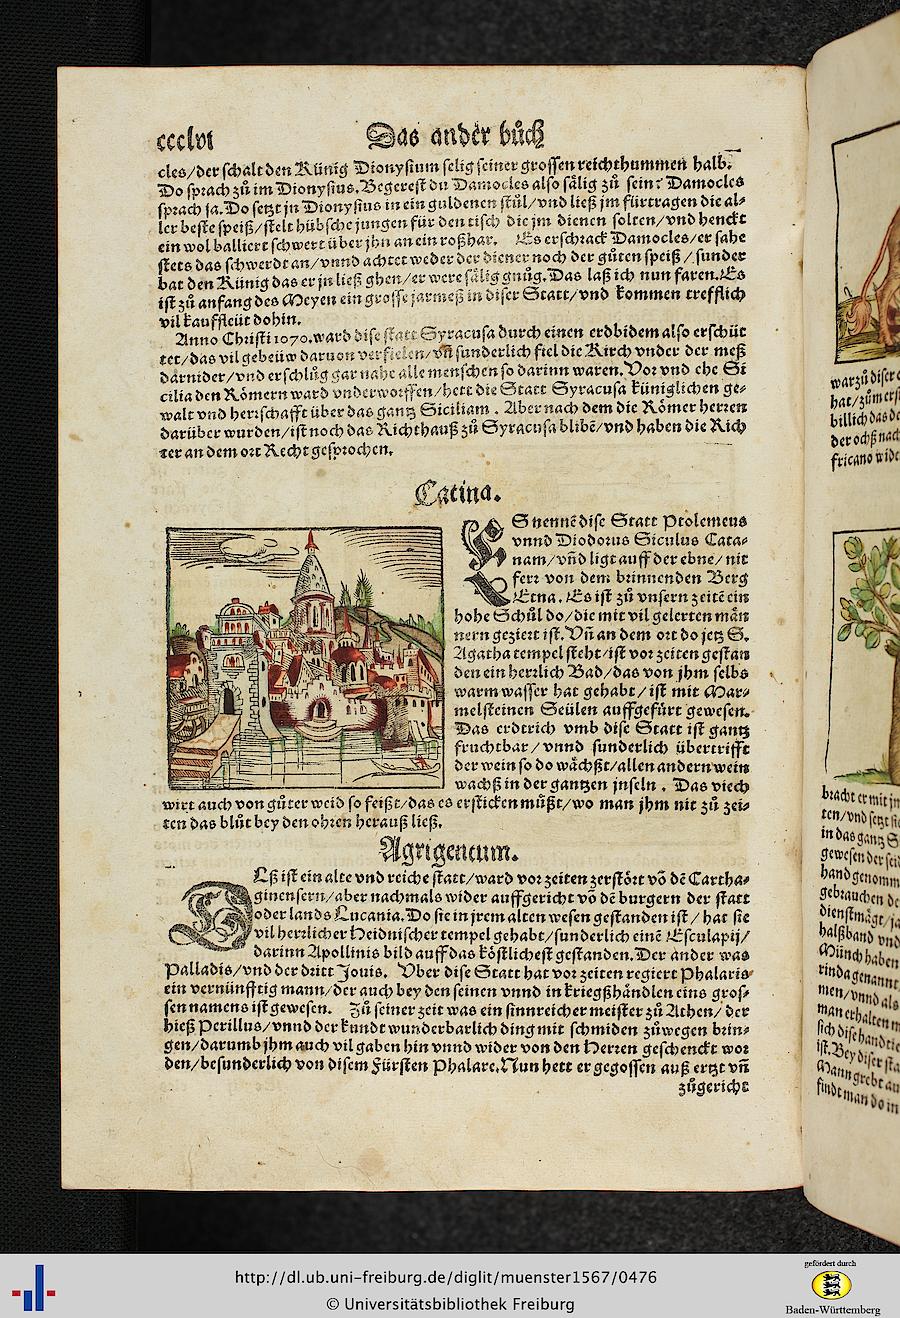 ccclvi
Das ander bůch
cles/der schalt den Künig Dionysium selig seiner grossen reichthummen halb.
Do sprach zů im Dionysius. Begerest du Damocles also sälig zů sein? Damocles
sprach ja. Do setzt jn Dionysius in ein guldenen stůl/vnd ließ jm fürtragen die al-
ler beste speiß/stelt hübsche jungen für den tisch die jm dienen solten/vnd henckt
ein wol balliert schwert über jhn an ein roßhar. Es erschrack Damocles/er sahe
stets das schwerdt an/vnnd achtet weder der diener noch der gůten speiß/sunder
bat den Künig das er jn ließ ghen/er were sälig gnůg. Das laß ich nun faren. Es
ist zů anfang des Meyen ein grosse jarmeß in diser Statt/vnd kommen trefflich
vil kauffleüt dohin.
Anno Christi 1070. ward dise statt Syracusa durch einen erdbidem also erschüt
tet/das vil gebeüw daruon verfielen/vñ sunderlich fiel die Kirch vnder der meß
darnider/vnd erschlůg gar nahe alle menschen so darinn waren. Vor vnd ehe Si
cilia den Römern ward vnderworffen/hett die Statt Syracusa küniglichen ge-
walt vnd herrschafft über das gantz Siciliam. Aber nach dem die Römer herren
darüber wurden/ist noch das Richthauß zů Syracusa blibē/vnd haben die Rich
ter an dem ort Recht gesprochen.
Catina.
ES nennē dise Statt Ptolemeus
vnnd Diodorus Siculus Cata-
nam/vñd ligt auff der ebne/nit
ferr von dem brinnenden Berg
Etna. Es ist zů vnsern zeitē ein
hohe Schůl do/die mit vil gelerten män
nern geziert ist. Vñ an dem ort do jetz S.
Agatha tempel steht/ist vor zeiten gestan
den ein herrlich Bad/das von jhm selbs
warm wasser hat gehabt/ist mit Mar-
melsteinen Seülen auffgefürt gewesen.
Das erdtrich vmb dise Statt ist gantz
fruchtbar/vnnd sunderlich übertrifft
der wein so do wächßt/allen andern wein
wachß in der gantzen jnseln. Das viech
wirt auch von gůter weid so feißt/das es ersticken müßt/wo man jhm nit zů zei-
ten das blůt bey den ohren herauß ließ.
Agrigentum.
Eß ist ein alte vnd reiche statt/ward vor zeiten zerstört vō dē Cartha-
ginensern/aber nachmals wider auffgericht vō dē burgern der statt
oder lands Lucania. Do sie in jrem alten wesen gestanden ist/hat sie
vil herrlicher Heidnischer tempel gehabt/sunderlich einē Esculapij/
darinn Apollinis bild auff das köstlichest gestanden. Der ander was
Palladis/vnd der dritt Jouis. Vber dise Statt hat vor zeiten regiert Phalaris
ein vernünfftig mann/der auch bey den seinen vnnd in kriegßhändlen eins gros-
sen namens ist gewesen. Zů seiner zeit was ein sinnreicher meister zů Athen/der
hieß Perillus/vnnd der kundt wunderbarlich ding mit schmiden zůwegen brin-
gen/darumb jhm auch vil gaben hin vnnd wider von den Herren geschenckt wor
den/besunderlich von disem Fürsten Phalare. Nun hett er gegossen auß ertzt vñ
zůgericht
war zů diser
hat/zům
billich das
der ochß nach
fricano wide
bracht er mit jn
ten/vnd setzt
in das gantz
gewesen der
hand genomm
gebrauchen
dienstmägt/
halßband vnd
Münch haben
rinda genannt
men/vnnd als
man erhalten
sich dise handtie
ist. Bey diser
Mann grebt
findt man do in
http://dl.ub.uni-freiburg.de/diglit/muenster1567/0476
© Universitätsbibliothek Freiburg
gefördert durch
Baden-Württemberg